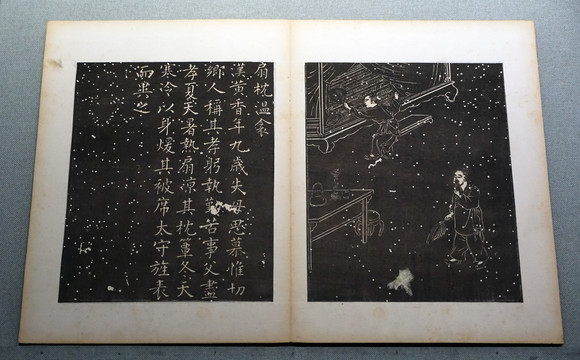 扇枕温衾
漢黃香年九歲失母思慕惟切
鄉人稱其孝躬執勤苦事父盡
孝夏天暑熱扇涼其枕簟冬天
寒冷以身煖其被席太守旌表
而異之